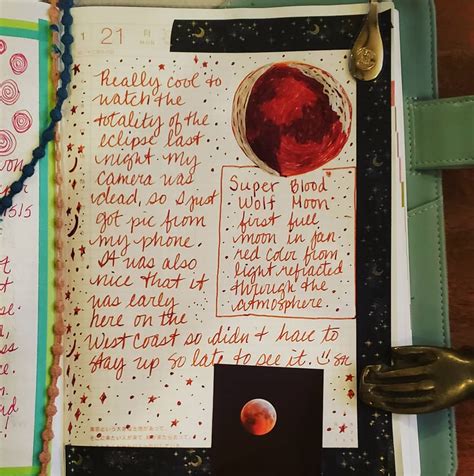 1 21 月
Really cool to
watch the
totality of the
eclipse last
night. my
camera was
dead, so I just
got pic from
my phone.
It was also
nice that it
was early
here on the
West Coast so didn't have to
stay up so late to see it.
Super Blood
Wolf Moon.
first full
moon in jan
red color from
light refracted
through the
atmosphere.